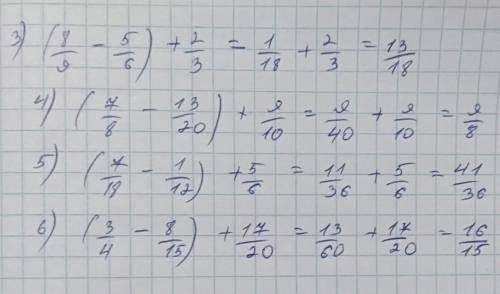 3) (8/9 - 5/6) + 2/3 = 1/18 + 2/3 = 13/18
4) (7/8 - 13/20) + 9/10 = 9/40 + 9/10 = 9/8
5) (7/18 - 1/12) + 5/6 = 11/36 + 5/6 = 41/36
6) (3/4 - 8/15) + 17/20 = 13/60 + 17/20 = 16/15